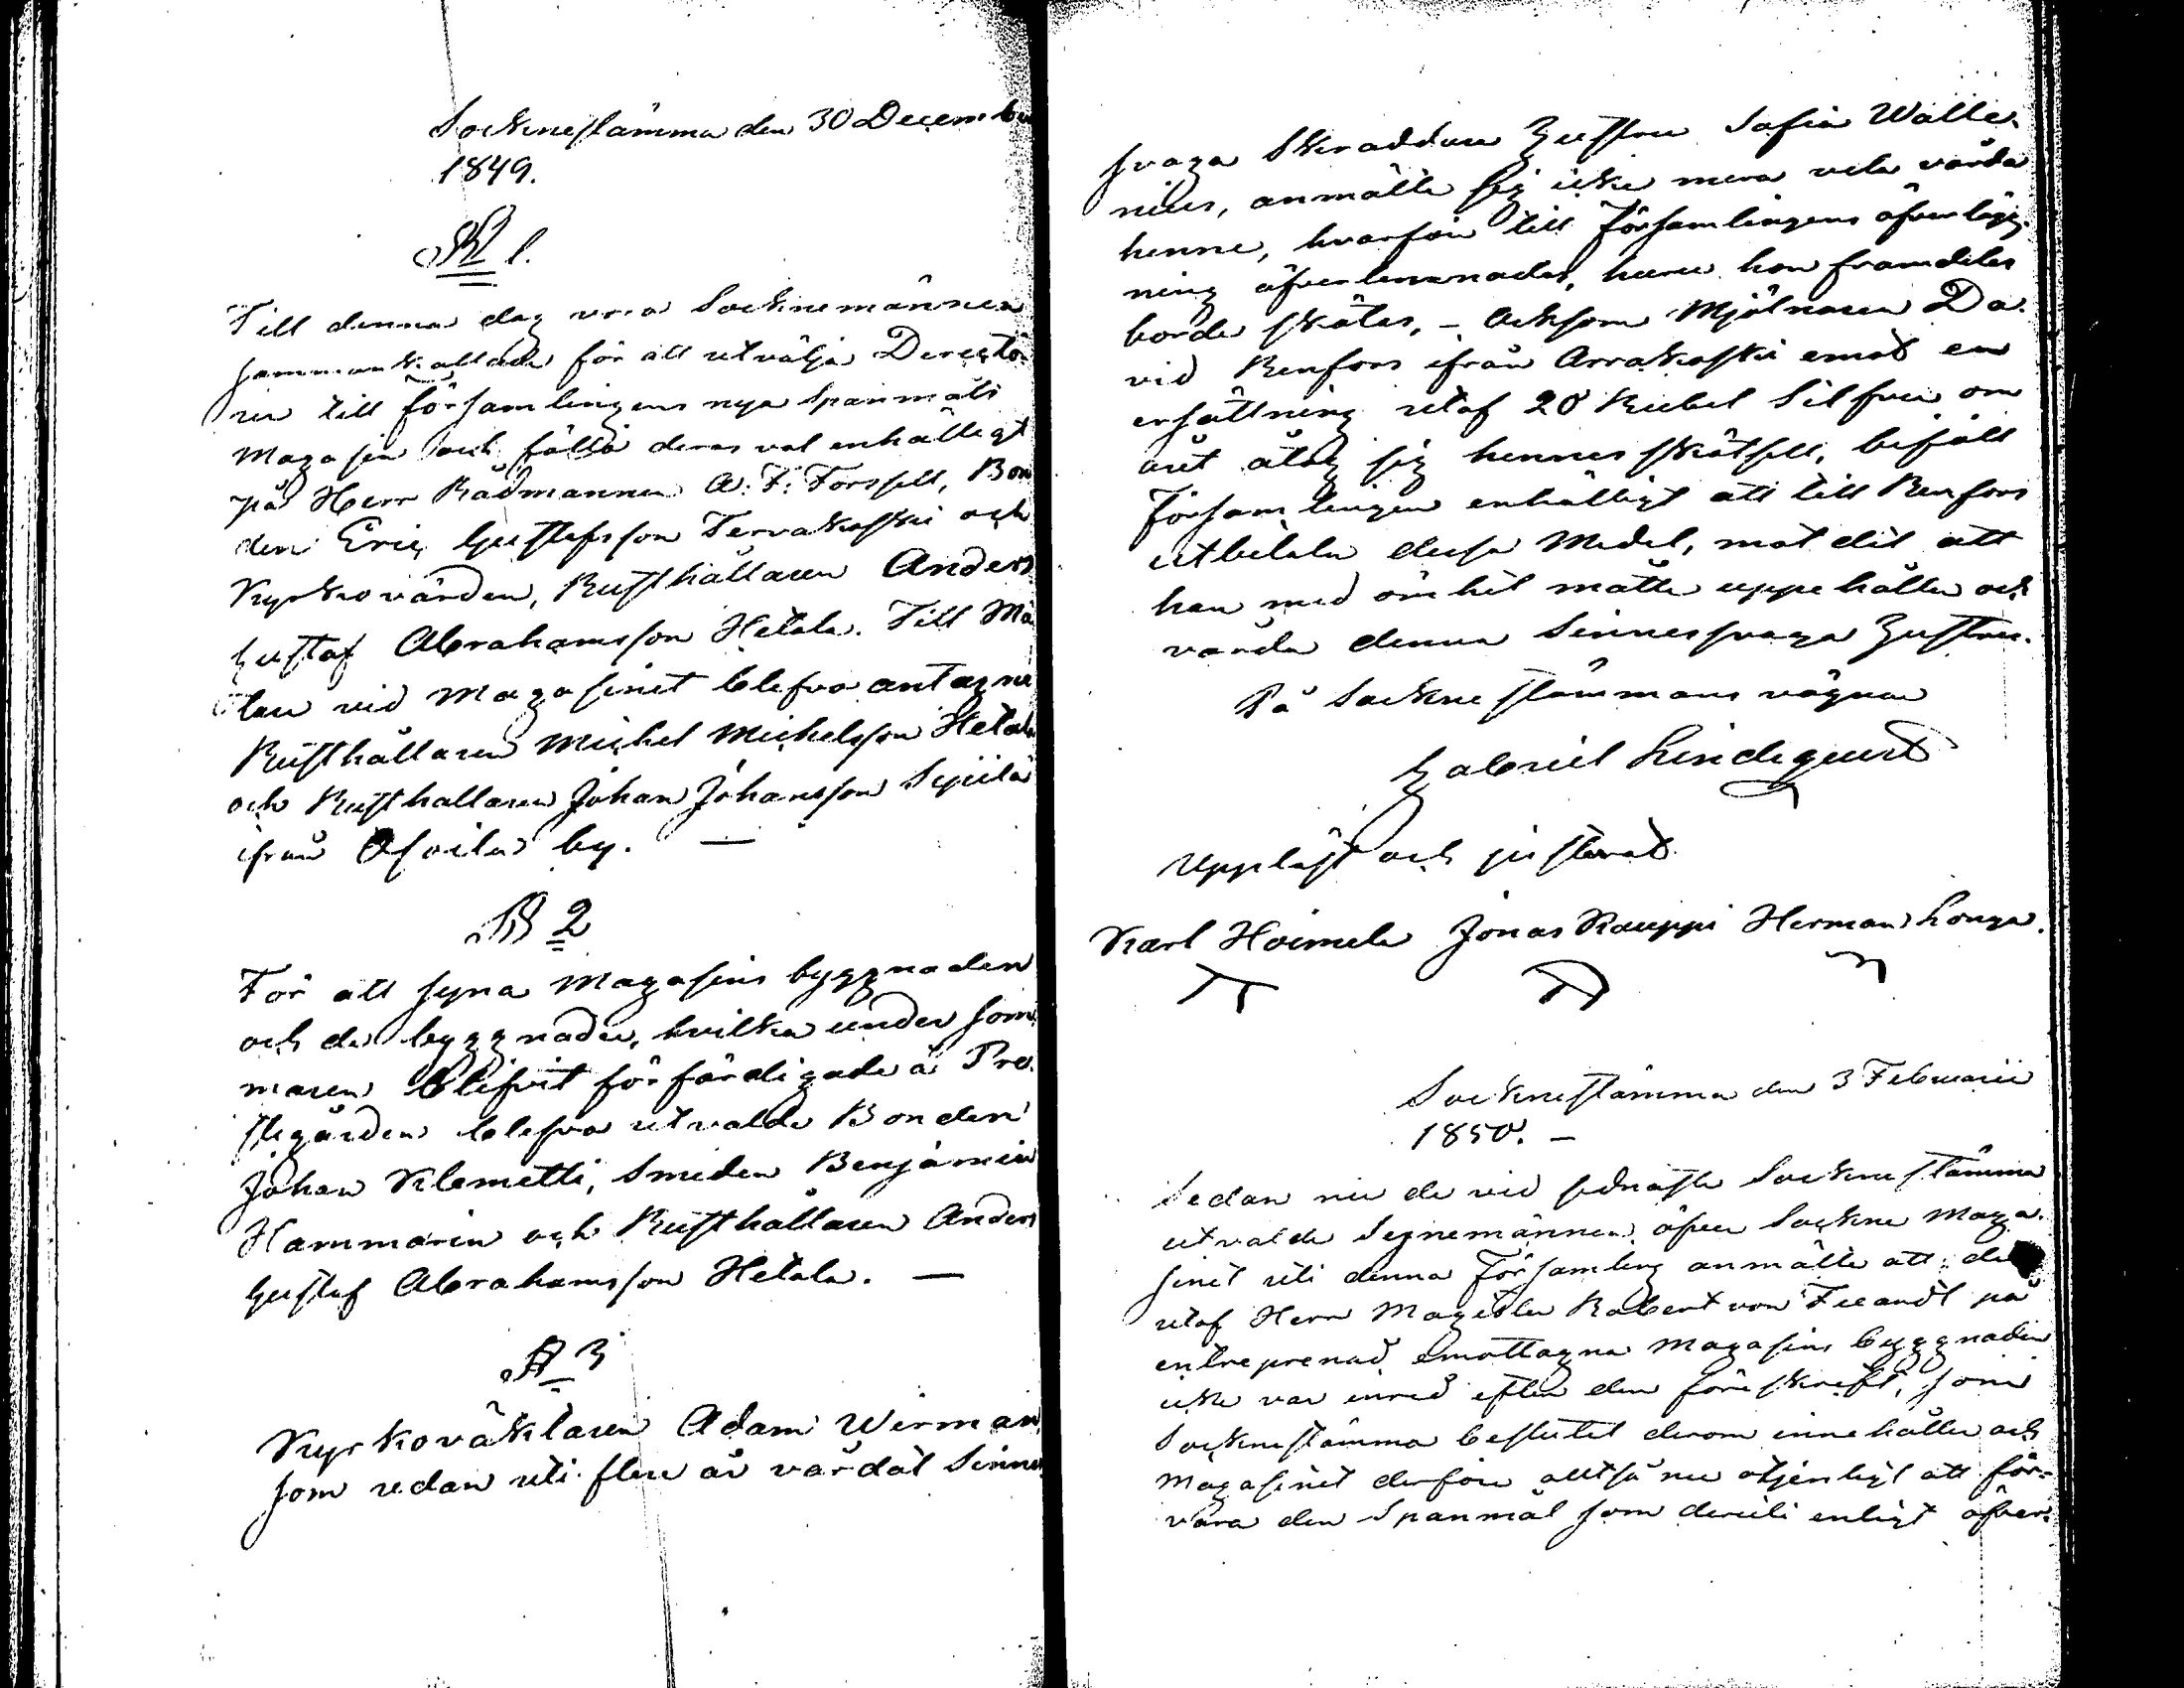 Socknestämma den 30 Decembe
1849.
§ 1.
Till denna dag voro Socknemännen
sammankallade för att utvälja Direktö-
rer till församlingens nya Spanmåls
magasin och följo deras val enhälligt
på Herr Rådmannen A: F: Forssell, Bon
den Eric Gustafsson Tervakoski och
Kyrkovärden, Rusthållaren Anders
Gustaf Abrahamsson Hetala. Till Mä
tare vid magasinet blefvo antagne
Rusthållaren Michel Michelsson Hetala
och Rusthållaren Johan Johansson Sipilä
ifrån by. —
§ 2
För att syna magasins byggnaden
och de byggnader, hvilka under som
maren blifvit förfärdigade å Pre-
stgården blefvo utvalde Bonden
Johan Klemetti, Smeden Benjamin
Hammarin och Rusthållaren Anders
Gustaf Abrahamsson Hetala. —
§ 3
Kyrkoväktaren Adam Wirman
som redan uti flere år vårdat Sinnes
svaga Skräddare Hustrun Sofia Walle-
nius, anmälte sig icke mera vela vårda
henne, hvarföre till Församlingens öfverlägg-
ning öfverlemnades, huru hon framdeles
borde skötas, – Och som Mjölnaren Da.
vid Renfors ifrån Arrakoski emot en
ersättning utaf 20 Rubel Silfver om
året åtog sig hennes skötsell, biföll
Församlingen enhälligt att till Renfors
utbetala dessa Medel, mot det att
han med ömhet måtte uppehålla och
vårda denna Sinnessvaga Hustru.
På Sockne stämmans vägnar
Gabriel Lindequist
Uppläst och justerat
Karl Heimola Jonas Kauppi Herman Honga.
Socknestämma den 3 Februarii
1850. –
Sedan nu de vid sednaste Socknestämma
utvalde Synemännen öfver Sockne Maga-
sinet uti denna Församling anmälte att den
utaf Herr Magister Robert von Fieandt på
entreprenad emottagna magasins byggnaden
icke var inred efter den föreskrift, som
Socknestämma beslutet derom innehåller och
magasinet derföre alltså nu otjenligt att för-
vara den Spanmål som deruti enligt öfver-